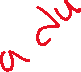 a du